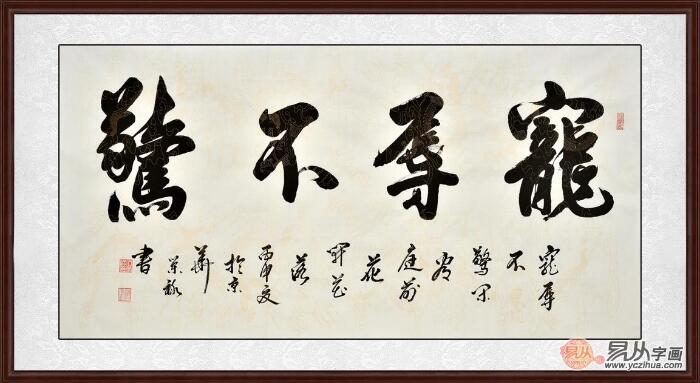 寵辱不驚
寵辱
不
驚閑
看
庭前
花
開花
落
丙申夏
於京
華
書
易从字画
www.yczihua.com